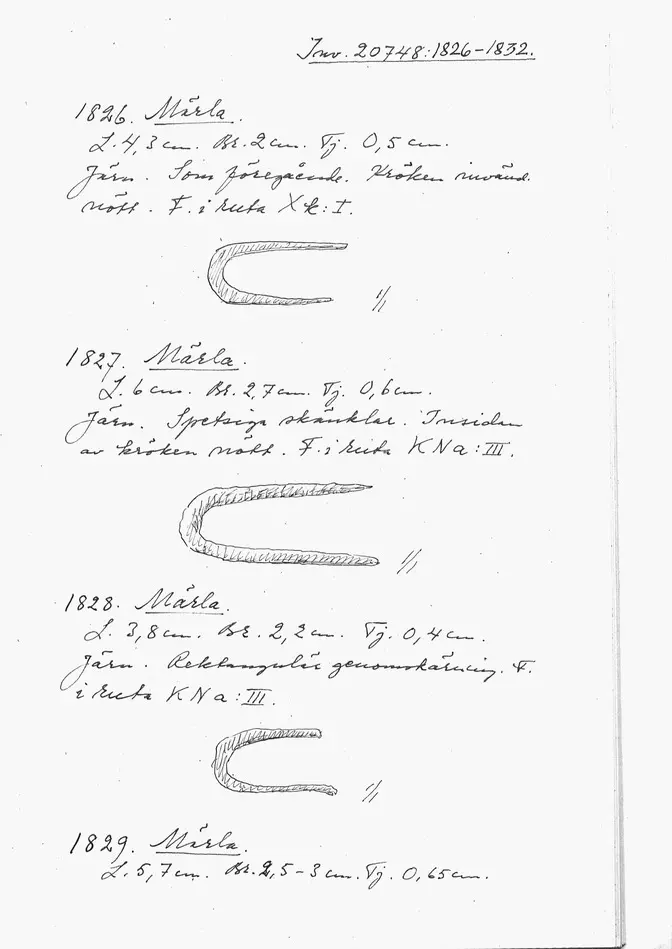 Inv. 20748:1826-1832.
1826. Märla.
L. 4,3 cm. Br. 2 cm. Tj. 0,5 cm.
Järn. Som föregående. Kröken invänd.
nött. F. i ruta Xk:I.
1/1
1827. Märla.
L. 6 cm. Br. 2,7 cm. Tj. 0,6 cm.
Järn. Spetsiga skänklar. Insidan
av kröken nött. F. i ruta KNa:III.
1/1
1828. Märla.
L. 3,8 cm. Br. 2,2 cm. Tj. 0,4 cm.
Järn. Rektangulär genomskärning. F.
i ruta KNa:III.
1/1
1829. Märla.
L. 5,7 cm. Br. 2,5-3 cm. Tj. 0,65 cm.